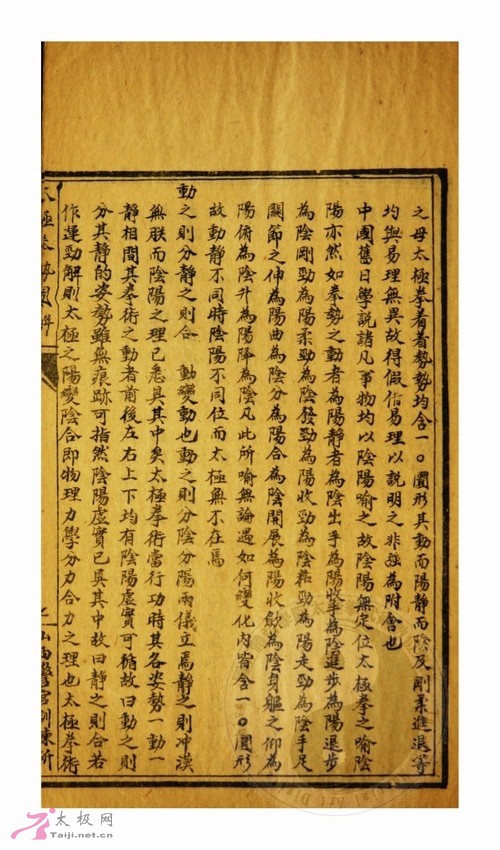 之母太極拳着着勢勢均含一〇圓形其動而陽靜而陰及剛柔進退等
均與易理無異故得假借易理以說明之非強為附會也
中國舊日學說諸凡事物均以陰陽喻之故陰陽無定位太極拳之喻陰
陽亦然如拳勢之動者為陽靜者為陰出手為陽收手為陰進步為陽退步
為陰剛勁為陽柔勁為陰發勁為陽收勁為陰粘勁為陽走勁為陰手足
關節之伸為陽曲為陰分為陽合為陰開展為陽收斂為陰身軀之仰為
陽俯為陰升為陽降為陰凡此所喻無論遇如何變化內皆含一〇圓形
故動靜不同時陰陽不同位而太極無不在焉
動之則分靜之則合 動變動也動之則分陰分陽兩儀立焉靜之則冲漠
無朕而陰陽之理已悉具其中矣太極拳術當行功時其各姿勢一動一
靜相間其拳術之動者前後左右上下均有陰陽虛實可循故曰動之則
分其靜的姿勢雖無痕跡可指然陰陽虛實已具其中故曰靜之則合若
作運勁解則太極之陽變陰合即物理力學分力合力之理也太極拳術
太極拳勢圖解
山西警官訓練所
太极网
Taiji.net.cn